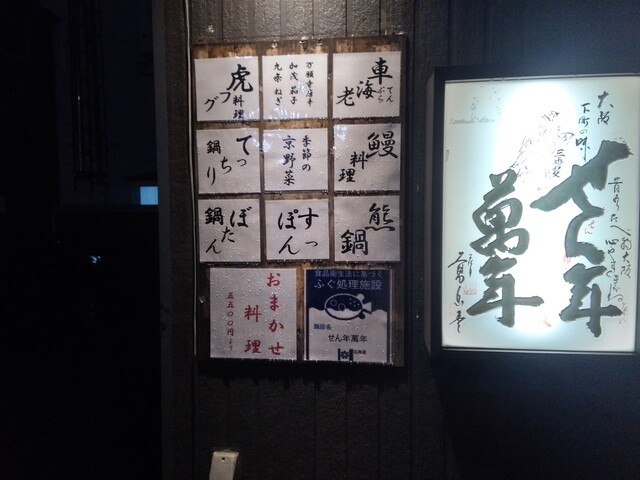 虎
フグ
料理
万願寺唐辛
加茂茄子
九条ねぎ
車
海
老
てん
ぷら
てっちり
鍋
季節の
京野菜
鰻
料理
ぼたん
鍋
すっ
ぽん
熊
鍋
おまかせ
料理
五五〇〇円より
食品衛生法に基づく
ふぐ処理施設
施設名
せん年萬年
大阪
下町の味
せん年
萬年